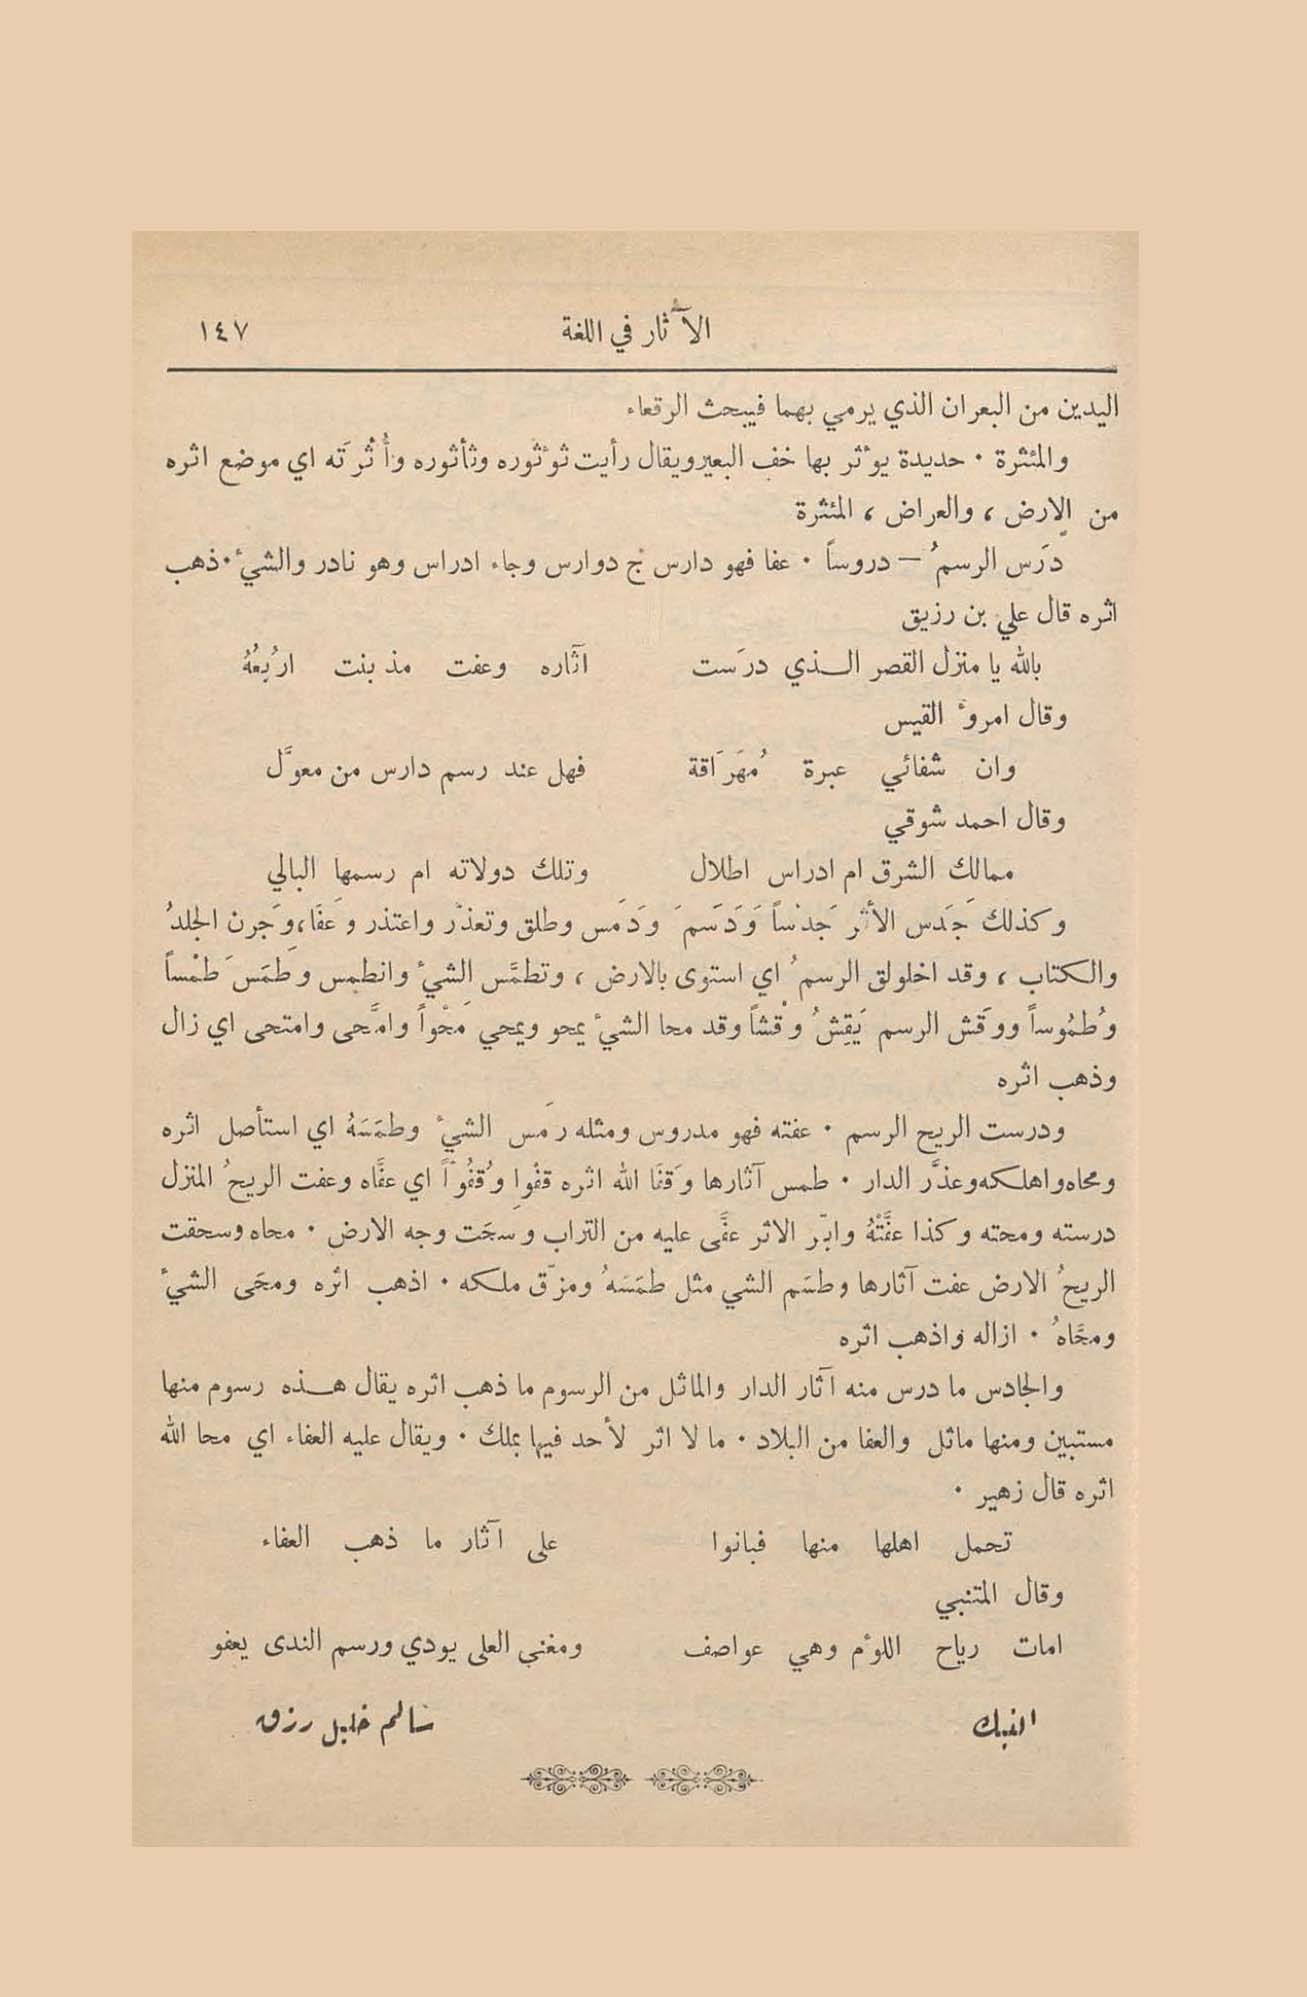 الآثار في اللغة ١٤٧
اليدين من البعران الذي يرمي بهما فيبحث الرقعاء
والمئثرة ٠ حديدة يوءثر بها خف البعير ويقال رأيت ثوءثوره وثأثوره وأُثرَته اي موضع اثره
من الارض ، والعراض ، المئثرة
درَس الرسمُ – دروساً ٠ عفا فهو دارس ج دوارس وجاء ادراس وهو نادر والشيء ٠ ذهب
اثره قال علي بن رزيق
بالله يا منزل القصر الـذي درَست آثاره وعفت مذ بنت اربُعُهُ
وقال امروء القيس
وان شفائي عبرة مُهَرَاقة فهل عند رسم دارس من معوَّل
وقال احمد شوقي
ممالك الشرق ام ادراس اطلال وتلك دولاته ام رسمها البالي
وكذلك جَدَس الأثر جَدْساً وَدَسَمَ وَدَمَس وطلق وتعذّر واعتذر وعَفَا، وجَرن الجلدُ
والكتاب ، وقد اخلولق الرسمُ اي استوى بالارض ، وتطمَّس الشيء وانطمس وطَمَس طَمْساً
وطُمُوساً ووَقش الرسم يَقِشُ وقْشاً وقد محا الشيء يمحو ويمحي مَحْواً وامَّحى وامتحى اي زال
وذهب اثره
ودرست الريح الرسم ٠ عفته فهو مدروس ومثله رمَس الشيء وطمَسَهُ اي استأصل اثره
ومحاه واهلكه وعذَّر الدار ٠ طمس آثارها وقَفَا الله اثره قفْوا وقُفُوّاً اي عفَّاه وعفت الريحُ المنزل
درسته ومحته وكذا عفَّتْهُ وابّر الاثر عفَّى عليه من التراب وسحَت وجه الارض ٠ محاه وسحقت
الريحُ الارض عفت آثارها وطسَم الشي مثل طمَسَهُ ومزّق ملكه ٠ اذهب اثره ومحَى الشيء
ومحَّاهُ ٠ ازاله واذهب اثره
والجادس ما درس منه آثار الدار والماثل من الرسوم ما ذهب اثره يقال هـذه رسوم منها
مستبين ومنها ماثل والعفا من البلاد ٠ ما لا اثر لأحد فيها بملك ٠ ويقال عليه العفاء اي محا الله
اثره قال زهير ٠
تحمل اهلها منها فبانوا على آثار ما ذهب العفاء
وقال المتنبي
امات رياح اللوءم وهي عواصف ومغنى العلى يودي ورسم الندى يعفو
النبك سالم خليل رزق